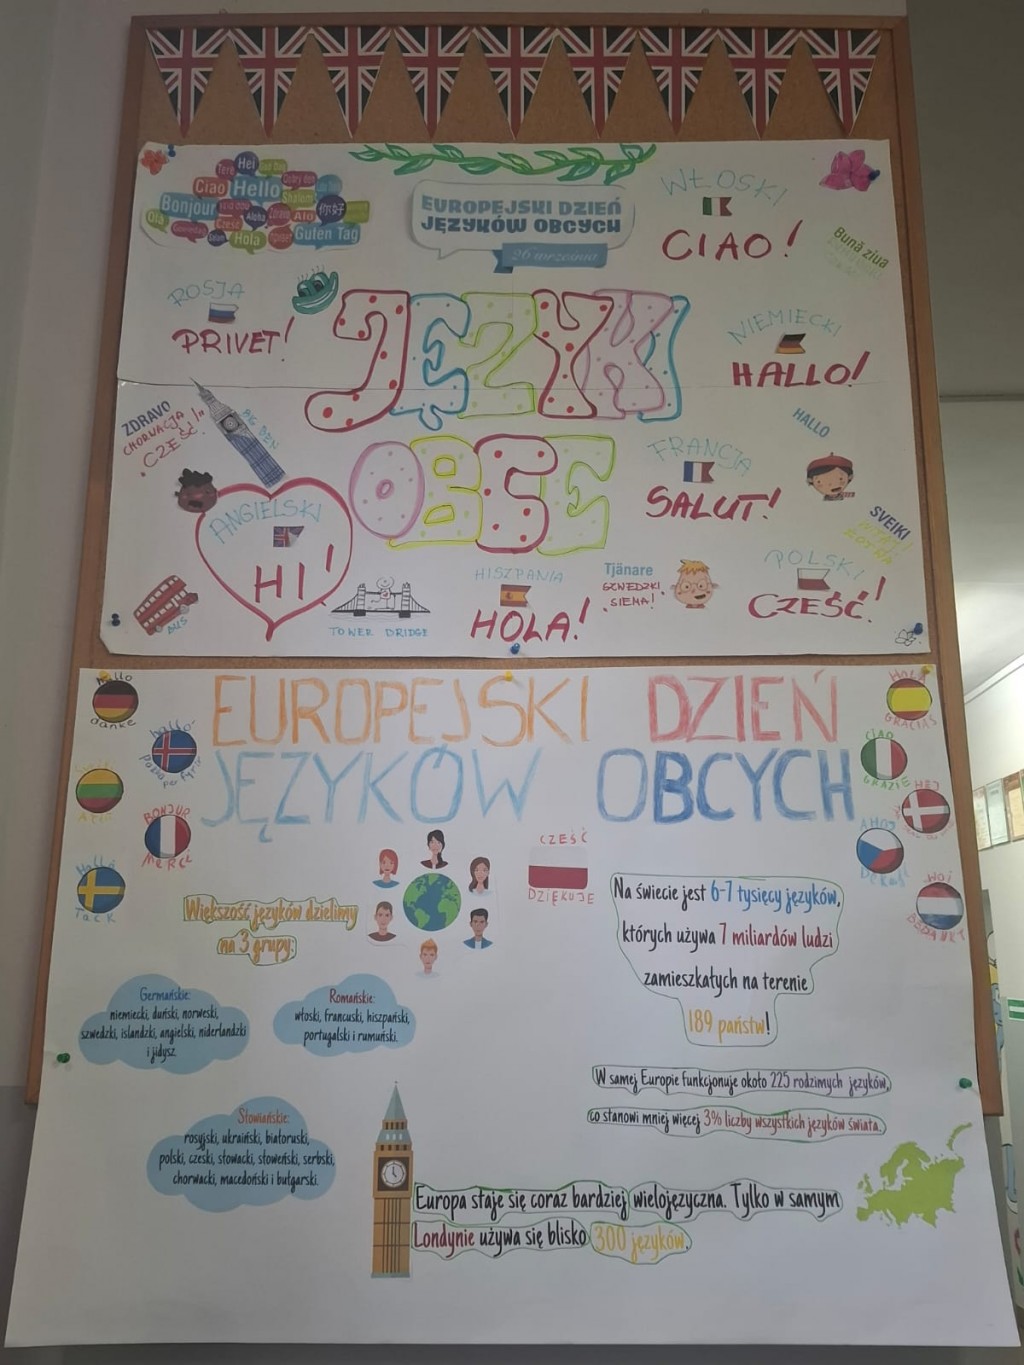 Hei
Ciao Hello
Bonjour
Aloha
Alo
Cześć
Olá
你好
Hola
Guten Tag
EUROPEJSKI DZIEŃ
JĘZYKÓW OBCYCH
26 września
WŁOSKI
CIAO!
Bună ziua
ROSJA
PRIVET!
JĘZYKI
OBCE
NIEMIECKI
HALLO!
ZDRAVO
CHORWACJA
"CZEŚĆ!"
BIG BEN
HALLO
FRANCJA
SALUT!
ANGIELSKI
HI!
SVEIKI
BUS
TOWER DRIDGE
HISZPANIA
HOLA!
Tjänare
SZWEDZKI
"SIEMA!"
POLSKI
CZEŚĆ!
EUROPEJSKI DZIEŃ
JĘZYKÓW OBCYCH
Hallo
danke
BONJUR
MERCI
Hallå
Tack
CZEŚĆ
DZIĘKUJE
GRACIAS
CIAO
GRAZIE
HEJ
AHOJ
Děkuji
Większość języków dzielimy
na 3 grupy:
Germańskie:
niemiecki, duński, norweski,
szwedzki, islandzki, angielski, niderlandzki
i jidysz.
Romańskie:
włoski, francuski, hiszpański,
portugalski i rumuński.
Słowiańskie:
rosyjski, ukraiński, białoruski,
polski, czeski, słowacki, słoweński, serbski,
chorwacki, macedoński i bułgarski.
Na świecie jest 6-7 tysięcy języków,
których używa 7 miliardów ludzi
zamieszkałych na terenie
189 państw!
W samej Europie funkcjonuje około 225 rodzimych języków,
co stanowi mniej więcej 3% liczby wszystkich języków świata.
Europa staje się coraz bardziej wielojęzyczna. Tylko w samym
Londynie używa się blisko 300 języków.